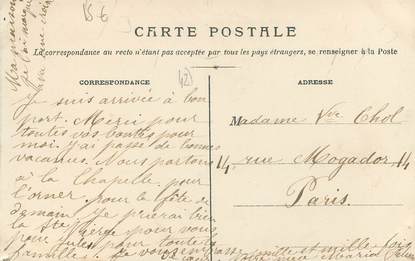 B 6
CARTE POSTALE
La correspondance au recto n'étant pas acceptée par tous les pays étrangers, se renseigner à la Poste
CORRESPONDANCE
ADRESSE
12
Je suis arrivée à bon
port. Merci pour
toutes vos bontés pour
moi. j'ai passé de bonnes
vacances. Nous partons
à la Chapelle pour
l'orner pour la fête de
demain. Je prierai bien
la Ste Vierge pour vous
pour toute la
famille. Je vous embrasse mille et mille fois
Madame Vve Chol
14 rue Mogador 14
Paris.
Ma maison